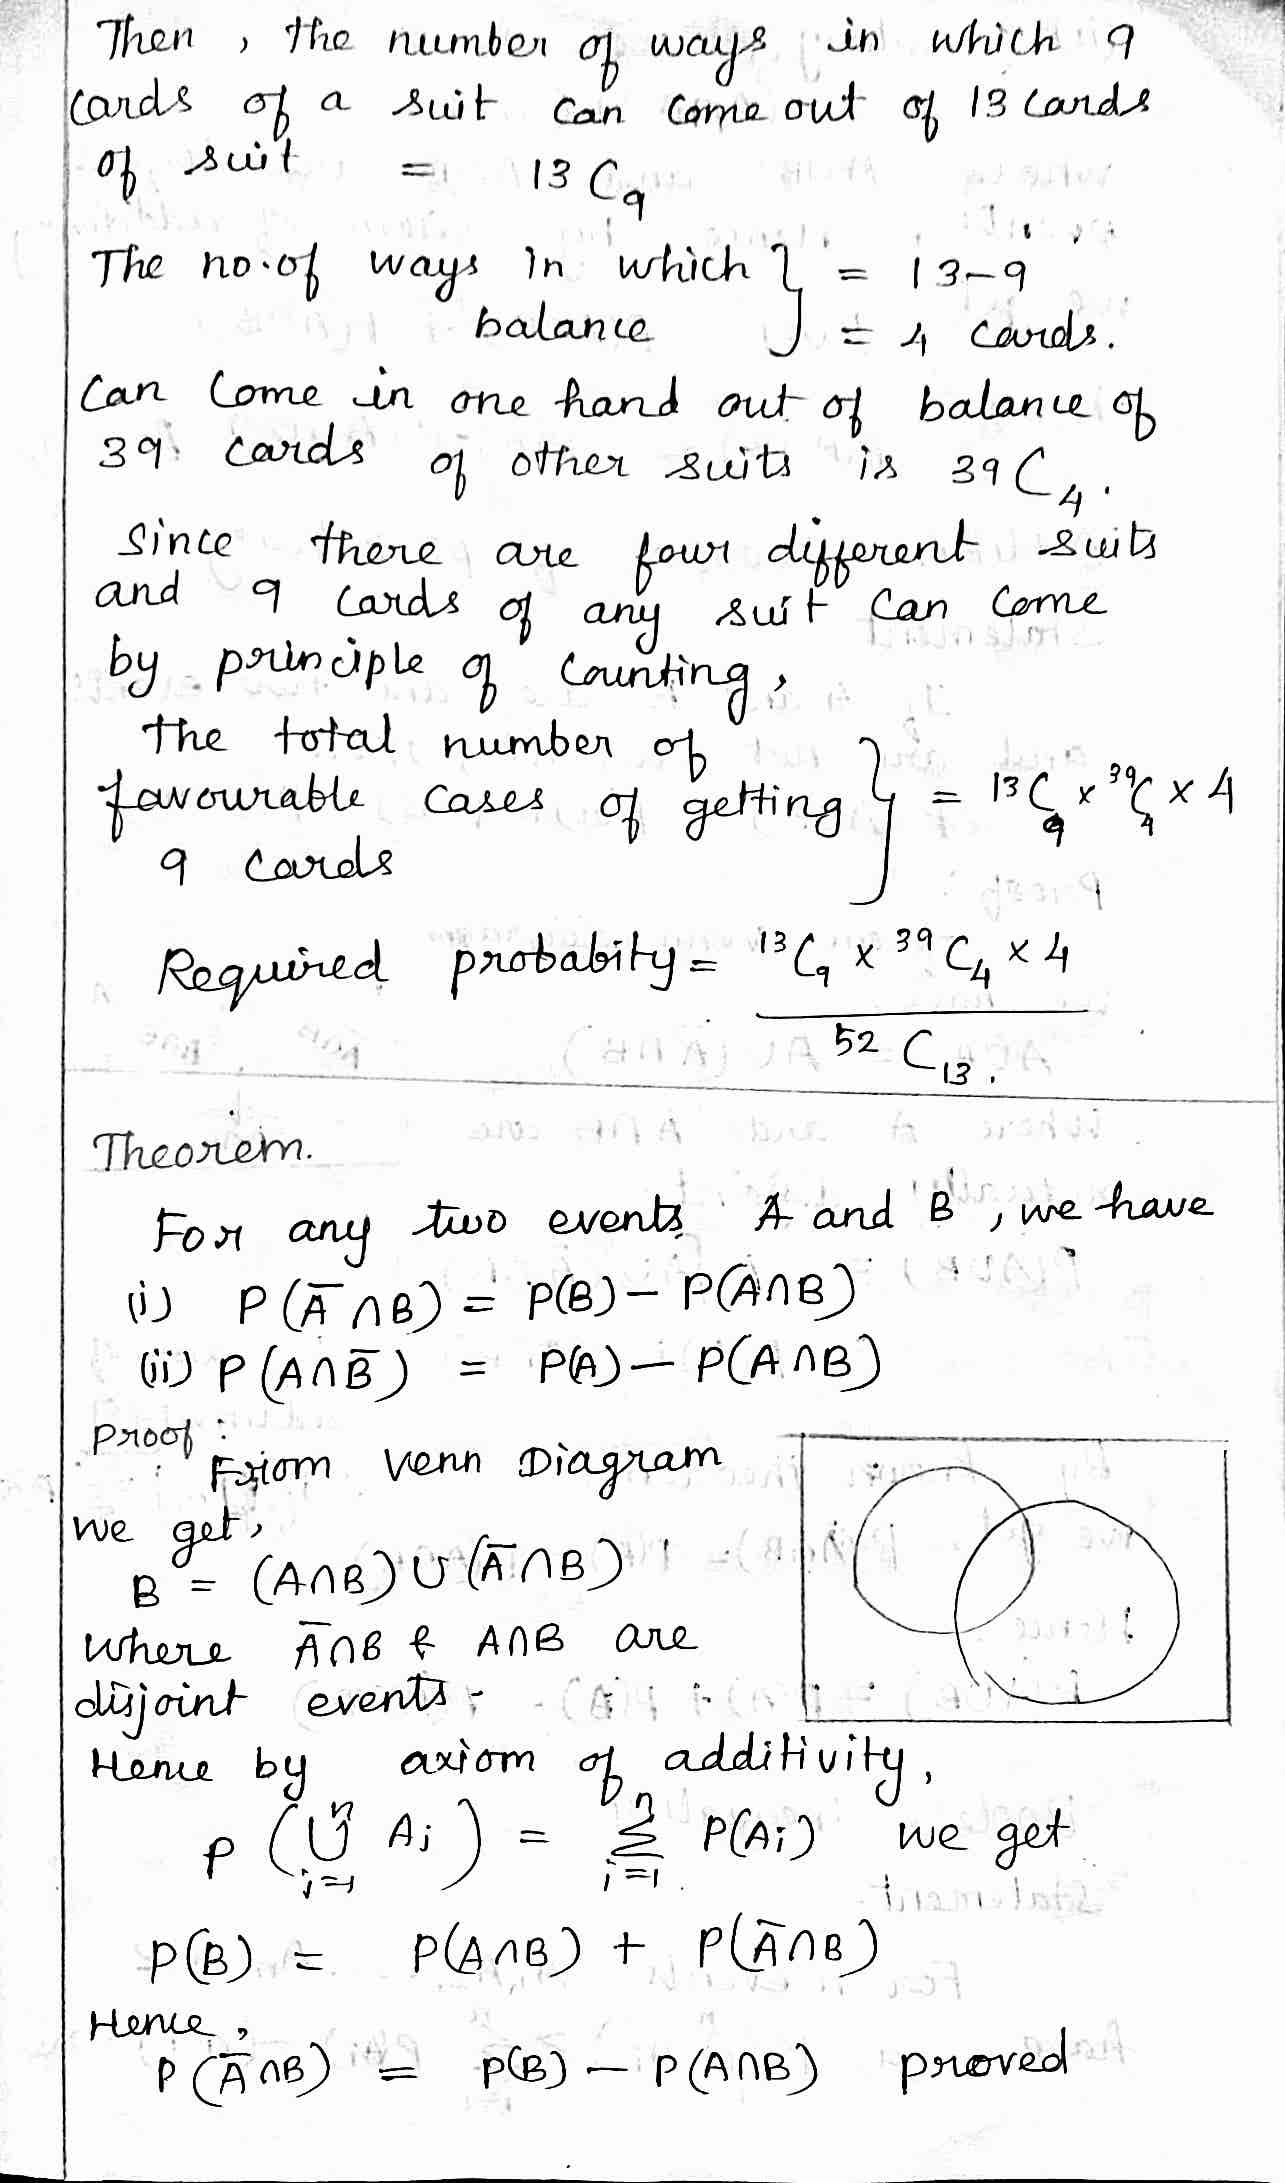 Then, the number of ways in which 9
cards of a suit can come out of 13 cards
of suit = 13 C₉
The no. of ways in which } = 13-9
balance } = 4 cards.
Can come in one hand out of balance of
39 cards of other suits is 39 C₄.
Since there are four different suits
and 9 cards of any suit can come
by principle of counting,
the total number of
favourable cases of getting } = ¹³C₉ × ³⁹C₄ × 4
9 cards
Required probabity = ¹³C₉ × ³⁹C₄ × 4
⁵²C₁₃.
Theorem.
For any two events A and B, we have
(i) P(A̅∩B) = P(B) - P(A∩B)
(ii) P(A∩B̅) = P(A) - P(A∩B)
Proof:
From Venn Diagram
we get,
B = (A∩B) ∪ (A̅∩B)
where A̅∩B & A∩B are
disjoint events.
Hence by axiom of additivity,
P(⋃ⁿᵢ₌₁ Aᵢ) = Σⁿᵢ₌₁ P(Aᵢ) we get
P(B) = P(A∩B) + P(A̅∩B)
Hence,
P(A̅∩B) = P(B) - P(A∩B) proved